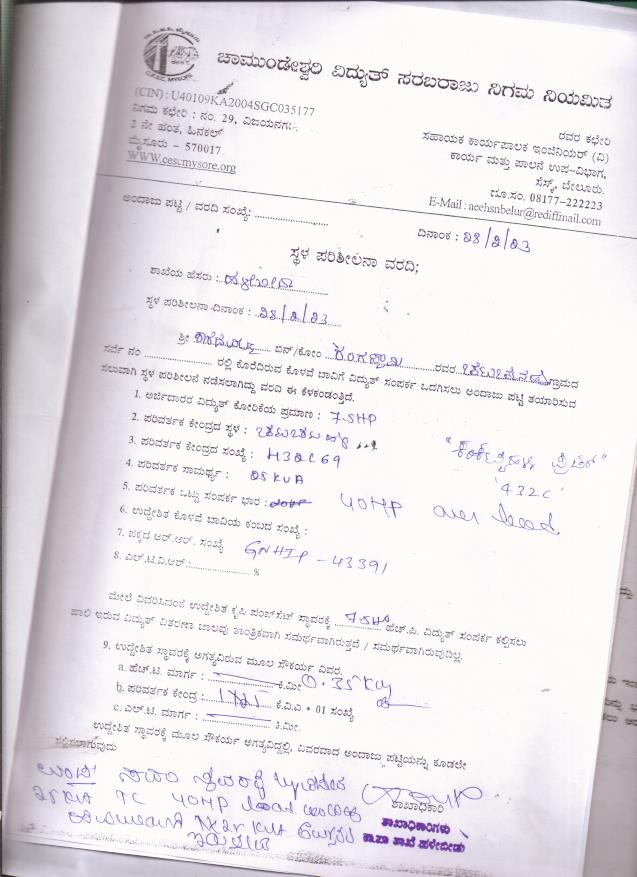 C.E.S.C. MYSORE
ಚಾಮುಂಡೇಶ್ವರಿ ವಿದ್ಯುತ್ ಸರಬರಾಜು ನಿಗಮ ನಿಯಮಿತ
(CIN) : U40109KA2004SGC035177
ನಿಗಮ ಕಛೇರಿ : ನಂ. 29, ವಿಜಯನಗರ
2 ನೇ ಹಂತ, ಹಿನಕಲ್
ಮೈಸೂರು - 570017
WWW.cescmysore.org
ರವರ ಕಛೇರಿ
ಸಹಾಯಕ ಕಾರ್ಯಪಾಲಕ ಇಂಜಿನಿಯರ್ (ವಿ)
ಕಾರ್ಯ ಮತ್ತು ಪಾಲನೆ ಉಪ-ವಿಭಾಗ,
ಸೆಸ್ಕ್, ಬೇಲೂರು.
ದೂ.ಸಂ. 08177-222223
E-Mail : aeehsnbelur@rediffmail.com
ಅಂದಾಜು ಪಟ್ಟಿ / ವರದಿ ಸಂಖ್ಯೆ: ........................
ದಿನಾಂಕ : 28/2/23
ಸ್ಥಳ ಪರಿಶೀಲನಾ ವರದಿ;
ಶಾಖೆಯ ಹೆಸರು : ಹಳೇಬೀಡು
ಸ್ಥಳ ಪರಿಶೀಲನಾ ದಿನಾಂಕ : 28/2/23
ಶ್ರೀ ಬಿನ್/ಕೋಂ ರಂಗಸ್ವಾಮಿ ರವರ ಗ್ರಾಮದ
ಸರ್ವೆ ನಂ .................. ರಲ್ಲಿ ಕೊರೆದಿರುವ ಕೊಳವೆ ಬಾವಿಗೆ ವಿದ್ಯುತ್ ಸಂಪರ್ಕ ಒದಗಿಸಲು ಅಂದಾಜು ಪಟ್ಟಿ ತಯಾರಿಸುವ
ಸಲುವಾಗಿ ಸ್ಥಳ ಪರಿಶೀಲನೆ ನಡೆಸಲಾಗಿದ್ದು ವರದಿ ಈ ಕೆಳಕಂಡಂತ್ತಿದೆ.
1. ಅರ್ಜಿದಾರರ ವಿದ್ಯುತ್ ಕೋರಿಕೆಯ ಪ್ರಮಾಣ : 7.5HP
2. ಪರಿವರ್ತಕ ಕೇಂದ್ರದ ಸ್ಥಳ :
3. ಪರಿವರ್ತಕ ಕೇಂದ್ರದ ಸಂಖ್ಯೆ : H32C69
'432C'
4. ಪರಿವರ್ತಕ ಸಾಮರ್ಥ್ಯ : 25KVA
5. ಪರಿವರ್ತಕ ಒಟ್ಟು ಸಂಪರ್ಕ ಭಾರ : 40HP over load
6. ಉದ್ದೇಶಿತ ಕೊಳವೆ ಬಾವಿಯ ಕಂಬದ ಸಂಖ್ಯೆ :
7. ಪಕ್ಕದ ಆರ್.ಆರ್. ಸಂಖ್ಯೆ GNHIP - 43391
8. ಎಲ್.ಟಿ.ವಿ.ಆರ್.:.................... %
ಮೇಲೆ ವಿವರಿಸಿದಂತೆ ಉದ್ದೇಶಿತ ಕೃಷಿ ಪಂಪ್‌ಸೆಟ್ ಸ್ಥಾವರಕ್ಕೆ 7.5HP ಹೆಚ್.ಪಿ. ವಿದ್ಯುತ್ ಸಂಪರ್ಕ ಕಲ್ಪಿಸಲು
ಹಾಲಿ ಇರುವ ವಿದ್ಯುತ್ ವಿತರಣಾ ಜಾಲವು ತಾಂತ್ರಿಕವಾಗಿ ಸಮರ್ಥವಾಗಿರುತ್ತದೆ / ಸಮರ್ಥವಾಗಿರುವುದಿಲ್ಲ.
9. ಉದ್ದೇಶಿತ ಸ್ಥಾವರಕ್ಕೆ ಅಗತ್ಯವಿರುವ ಮೂಲ ಸೌಕರ್ಯ ವಿವರ.
a. ಹೆಚ್.ಟಿ. ಮಾರ್ಗ : ಕಿ.ಮೀ 0.35
b. ಪರಿವರ್ತಕ ಕೇಂದ್ರ : 1X25 ಕೆ.ವಿ.ಎ * 01 ಸಂಖ್ಯೆ
c. ಎಲ್.ಟಿ. ಮಾರ್ಗ : ಕಿ.ಮೀ.
ಉದ್ದೇಶಿತ ಸ್ಥಾವರಕ್ಕೆ ಮೂಲ ಸೌಕರ್ಯ ಅಗತ್ಯವಿದ್ದಲ್ಲಿ, ವಿವರವಾದ ಅಂದಾಜು ಪಟ್ಟಿಯನ್ನು ಕೂಡಲೇ
ಸಲ್ಲಿಸಲಾಗುವುದು
ಶಾಖಾಧಿಕಾರಿ
25 KVA TC 40HP load
1X25 KVA
ಶಾಖಾಧಿಕಾರಿಗಳು
ಕಾ.ಪಾ ಶಾಖೆ ಹಳೇಬೀಡು